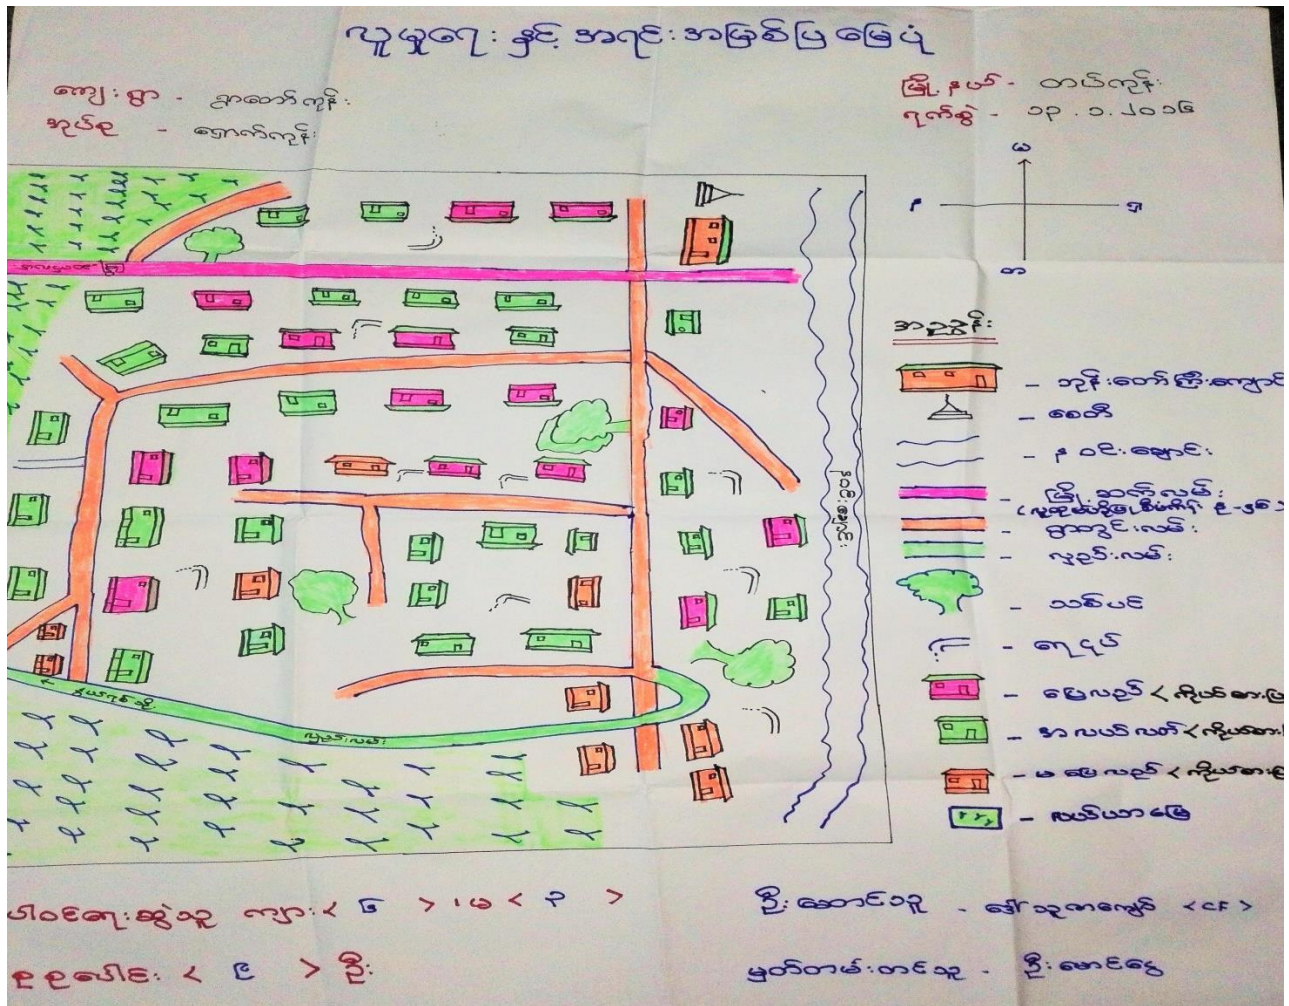 လူမှုရေး နှင့် အရင်းအမြစ်ပြ မြေပုံ
ကျေးရွာ - ရွာတော်ကုန်း
အုပ်စု - ရှောက်ကုန်း
မြို့နယ် - တပ်ကုန်း
ရက်စွဲ - ၁၃.၁.၂၀၁၆
မ
န
ရှ
တ
အညွှန်း
- ဘုန်းတော်ကြီးကျောင်
- စေတီ
- နဝင်းချောင်း
- မြို့ဆက်လမ်း
- ရွာတွင်းလမ်း
- လှည်းလမ်း
- သစ်ပင်
- ရေငုပ်
- မြေလည် < ကိုယ်စားပြ
- အလယ်လတ် < ကိုယ်စား
- မမြေလည် < ကိုယ်စား
- လယ်ယာမြေ
နဝင်းချောင်း
လှည်းလမ်း
ပါဝင်ရေးဆွဲသူ ကျား < ၆ > ၊ မ < ၃ >
စုစုပေါင်း < ၉ > ဦး
ဦးဆောင်သူ - ဒေါ်သူဇာကျော် < CF >
မှတ်တမ်းတင်သူ - ဦးမောင်ငွေ